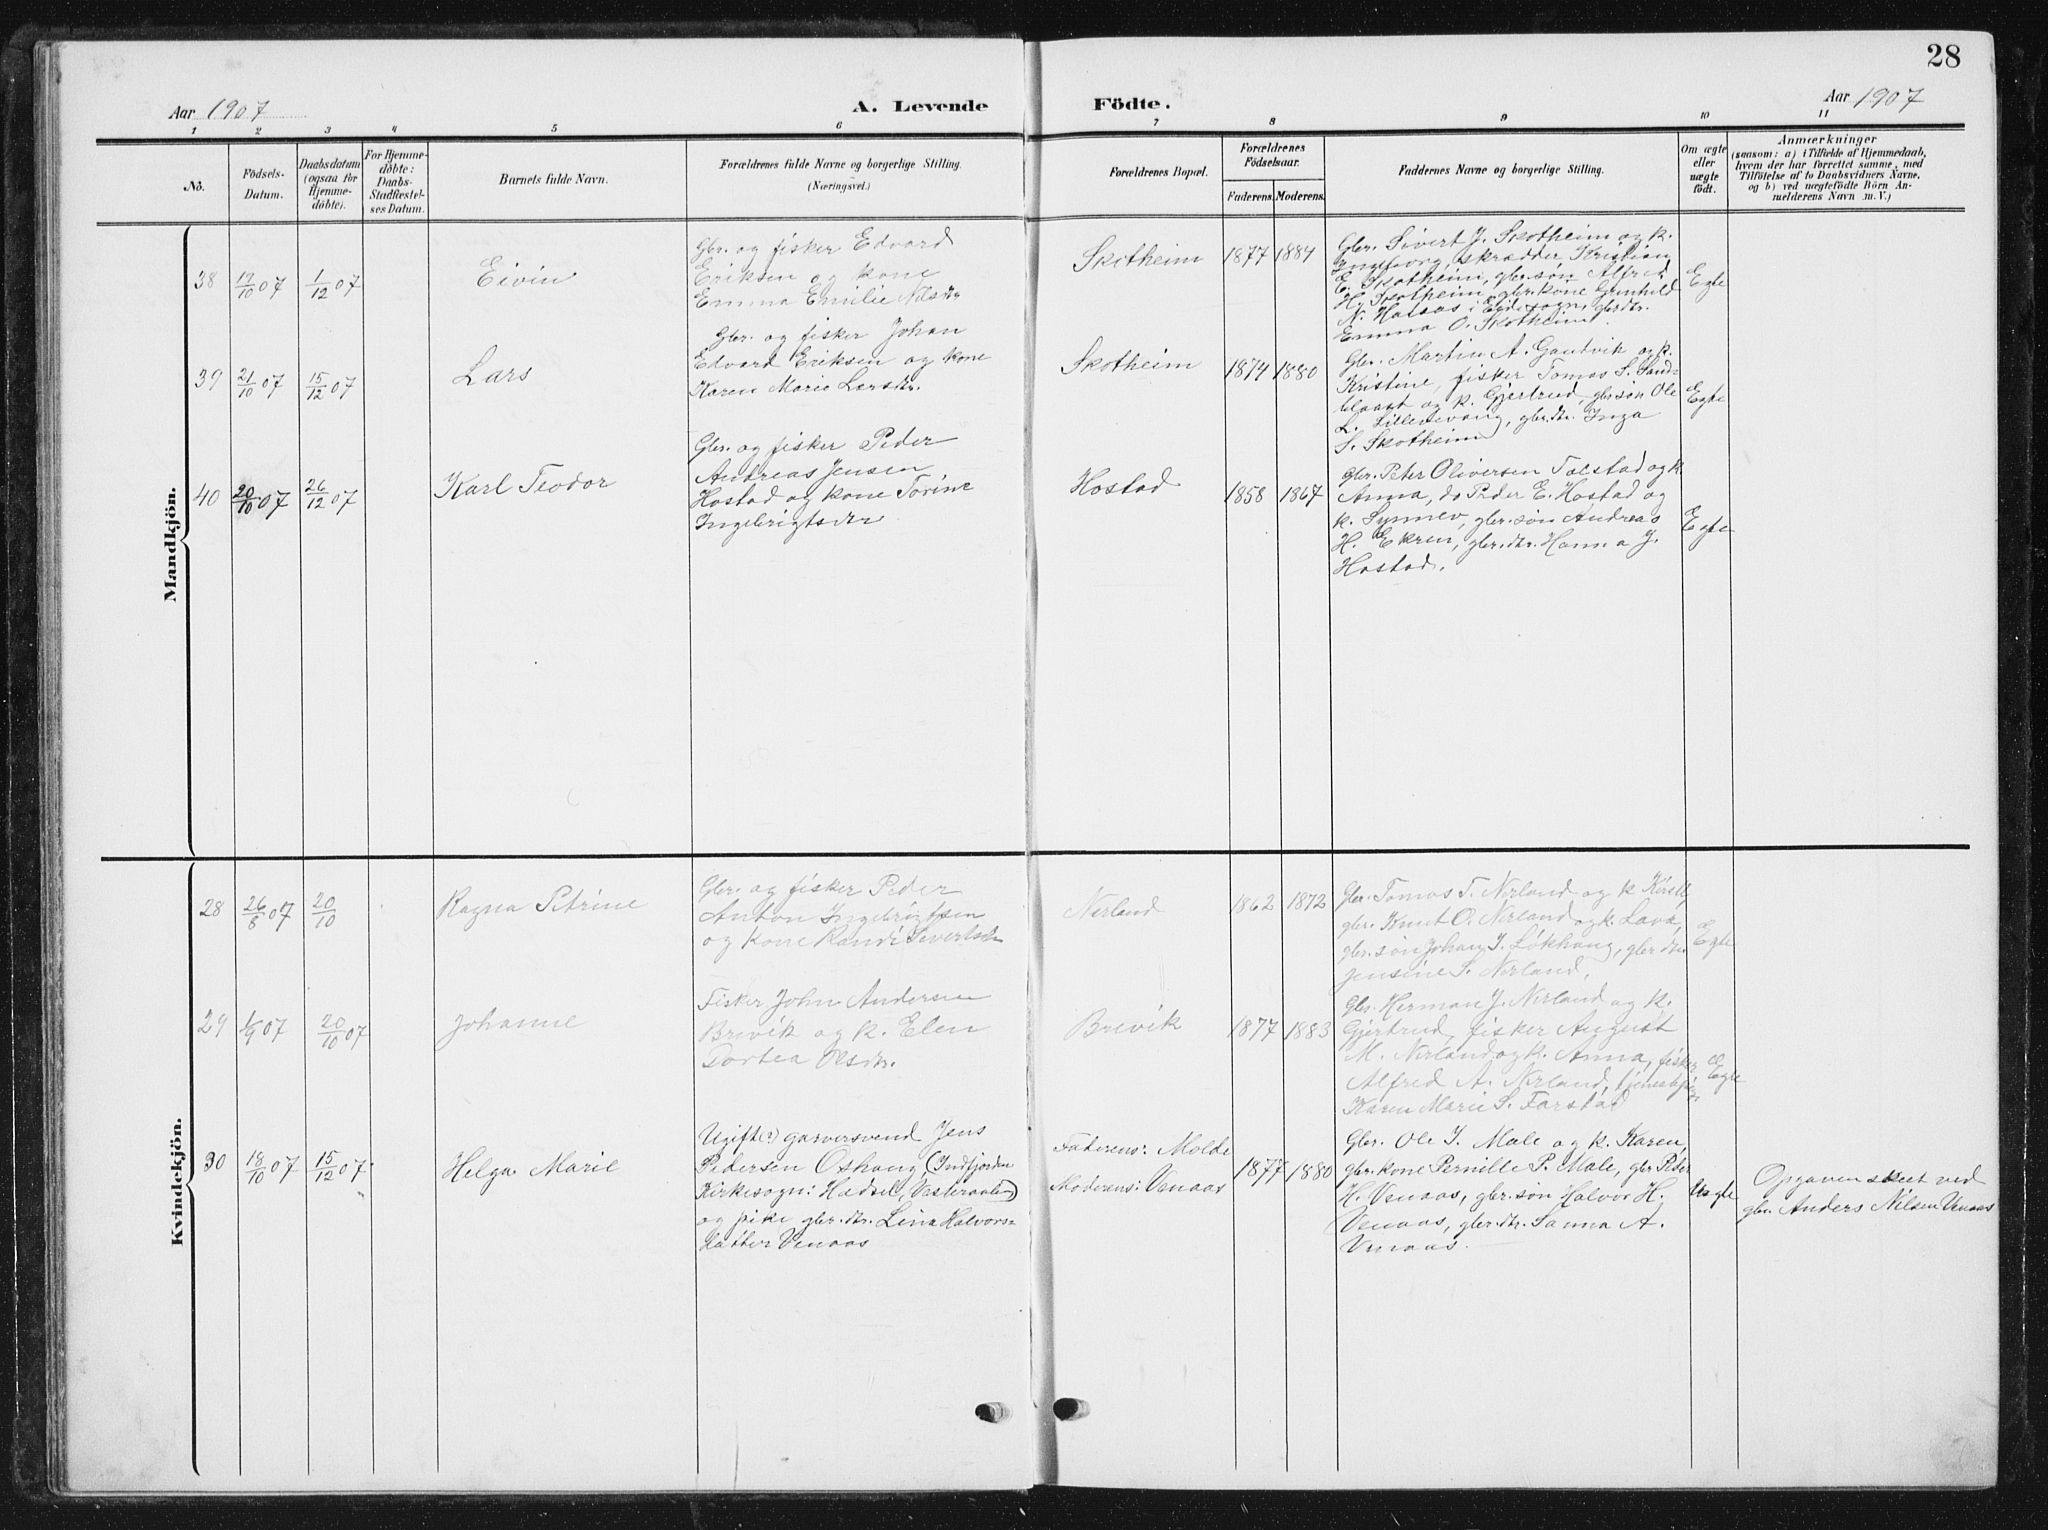 28
Aar 1907
A. Levende
Födte.
Aar 1907
1 2 3 4 5 6 7 8 9 10 11
No.
Födsels-
Datum.
Daabsdatum
(ogsaa for
Hjemme-
döbte).
For Hjemme-
döbte:
Daabs-
Stadfæstel-
ses Datum.
Barnets fulde Navn.
Forældrenes fulde Navne og borgerlige Stilling.
(Næringsvei.)
Forældrenes Bopæl.
Forældrenes
Födselsaar.
Faderens. Moderens.
Faddernes Navne og borgerlige Stilling.
Om ægte
eller
uægte
födt.
Anmærkninger
(saasom: a) i Tilfælde af Hjemmedaab,
hvem der har forrettet samme, med
Tilföielse af to Daabsvidners Navne,
og b) ved uægtefödte Börn An-
melderens Navn m. V.)
Mandkjön.
38 17/10 07 1/12 07
Eivin
Gbr. og fisker Edvard
Eriksen og kone
Emma Emilie Nilsdtr
Skotheim
1877 1884
Gbr. Sivert J. Skotheim og k.
Ingeborg, skrædder Kristian
E. Skotheim, gbr.søn Alfred
H. Skotheim, gbr.kone Gunhild
N. Hataas i Eide sogn, gbr.dtr.
Emma O. Skotheim.
Egte
39 21/10 07 15/12 07
Lars
Gbr. og fisker Johan
Edvard Eriksen og kone
Karen Marie Larsdtr.
Skotheim
1874 1880
Gbr. Martin A. Gautvik og k.
Kristine, fisker Tomas S. Sand-
blaast og k. Gjertrud, gbr.søn Ole
L. Lillevevang, gbr.dtr. Inga
S. Skotheim
Egte
40 20/10 07 26/12 07
Karl Teodor
Gbr. og fisker Peder
Andreas Jensen
Hostad og kone Torine
Ingebrigtsdtr
Hostad
1858 1867
Gbr. Peter Oliversen Tolstad og k.
Anna, do Peder E. Hostad og
k. Synnev, gbr.søn Andreas
H. Ekren, gbr.dtr. Hanna J.
Hostad.
Egte
Kvindekjön.
28 26/8 07 20/10
Ragna Petrine
Gbr. og fisker Peder
Anton Ingebrigtsen
og kone Randi Sivertsdtr
Nerland
1862 1872
Gbr. Tomas T. Nerland og k. Kirsti,
gbr. Knut O. Nerland og k. Lava,
gbr.søn Johan J. Løkhaug, gbr.dtr.
Jensine S. Nerland.
Egte
29 1/9 07 20/10 07
Johanne
Fisker John Andersen
Brevik og k. Elen
Dortea Olsdtr.
Brevik
1877 1883
Gbr. Herman J. Nerland og k.
Gjertrud, fisker August
M. Nerland og k. Anna, fisker
Alfred A. Nerland, tjenestpige
Karen Marie S. Farstad
Egte
30 18/10 07 15/12 07
Helga Marie
Ugift(?) garversvend Jens
Pedersen Oshaug (Indfjorden
Kirkesogn: Hadsel, Vesteraalen)
og pike gbr.dtr. Lina Halvors-
datter Venaas
Faderens: Molde
Moderens: Venaas
1877 1880
Gbr. Ole J. Male og k. Karen,
gbr.kone Pernille P. Male, gbr. Peder
H. Venaas, gbr.søn Halvor H.
Venaas, gbr.dtr. Sanna A.
Venaas.
Uegte
Opgaven skeet ved
gbr. Anders Nilsen Venaas